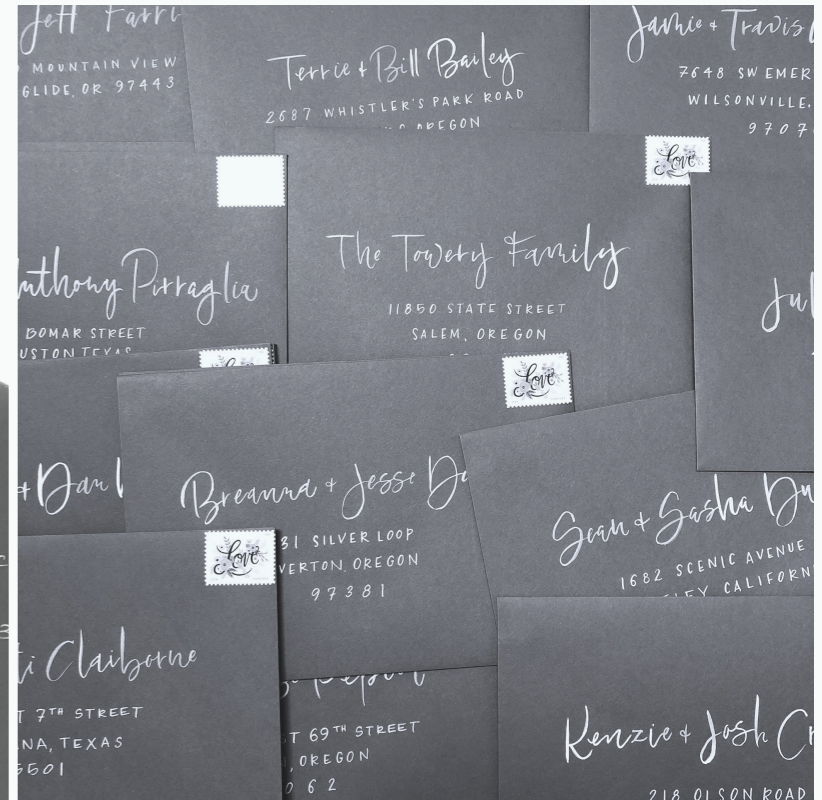 Jeff
MOUNTAIN VIEW
GLIDE, OR 97443
Terrie + Bill Bailey
2687 WHISTLER'S PARK ROAD
OREGON
Jamie + Travis
7648 SW EMER
WILSONVILLE,
9707
love
The Towery Family
11850 STATE STREET
SALEM, OREGON
nthony Pirraglia
BOMAR STREET
USTON TEXAS
Jul
love
love
+ Dan
Breanna + Jesse Da
31 SILVER LOOP
VERTON, OREGON
97381
Sean + Sasha Du
1682 SCENIC AVENUE
LEY CALIFORN
love
ti Claiborne
T 7TH STREET
NA, TEXAS
5501
T 69TH STREET
, OREGON
062
Kenzie + Josh Cr
218 OLSON ROAD